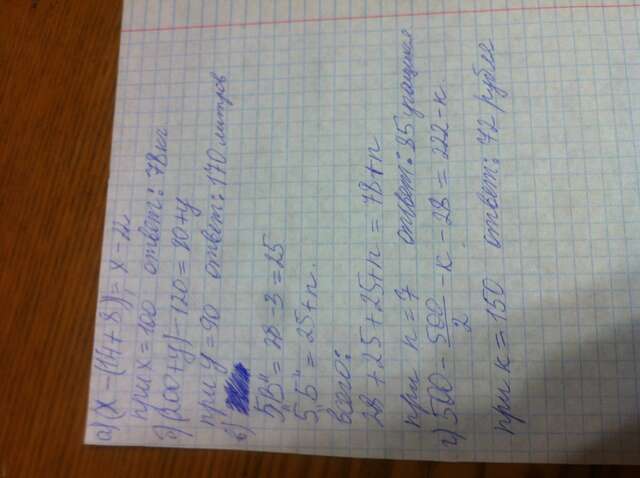 а) (x - (14 + 8)) = x - 22
при x = 100 ответ: 78 кг
б) (200 + y) - 120 = 80 + y
при y = 90 ответ: 170 литров
в)
5 „В" = 28 - 3 = 25
5 „Б" = 25 + n.
всего:
28 + 25 + 25 + n = 78 + n
при n = 7 ответ: 85 учащихся
г) 500 - 500/2 - к - 28 = 222 - к.
при к = 150 ответ: 72 рубля